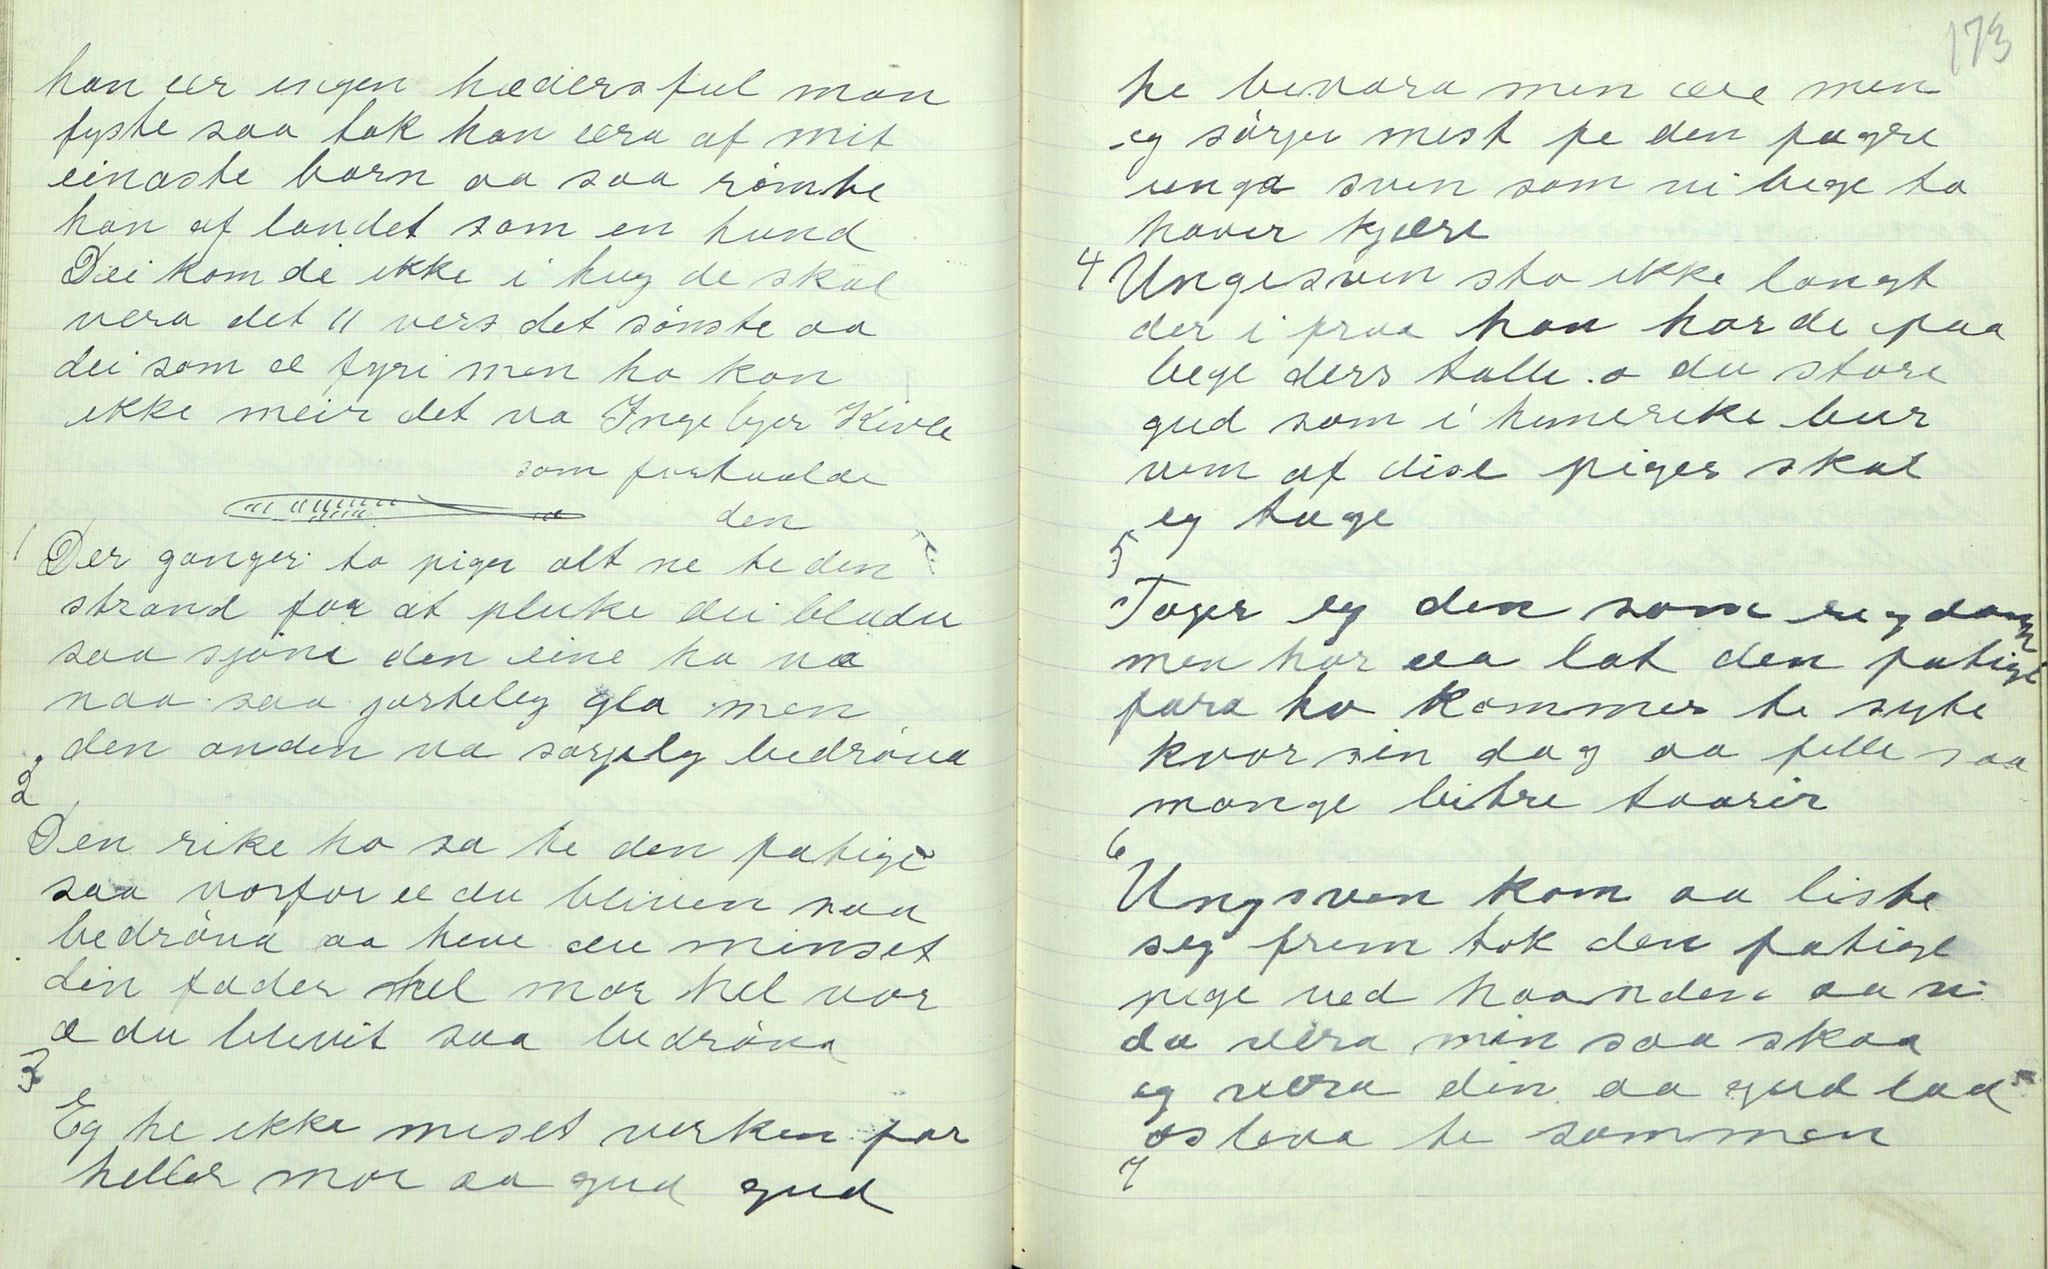 han ær ingen hædersful man
fyste saa tok han æra af mit
einaste barn aa saa römte
han af landet som en hund
Dei kom de ikke i hug de skal
vera det 11 vers det sönste aa
dei som æ fyri men ho kan
ikke meir det va Ingebjør Kivle
som fortaalde
den
1 Der ganger to piger alt ne te den
strand for at pluke dei bladu
saa sjöne den eine ho va
naa saa jarteleg gla men
den anden va sörgelg bedröva
2
Den rike ho sa te den fatige
saa vorfor æ du bliven saa
bedröva aa heve du minset
din fader hel mor hel vor
æ du blevit saa bedröva
3
Eg he ikke miset verken far
heller mor aa gud gud
173
he bevara men ære men
eg sörger mest pe den fagre
unga sven som vi bege to
haver kjære
4 Ungesven sto ikke langt
der i fraa han horde paa
bege ders talle o du store
gud som i himerike bur
vem af dise piger skal
eg tage
5
Tager eg den som rigdommen
men har aa lat den fatige
fara ho kommer te syte
kvor sin dag aa felle saa
mange bitre taarer
6
Ungsven kom aa liste
seg frem tok den fatige
pige ved haanden aa vi
du være min saa skaa
eg være din aa gud lad
os leva te sammen
7